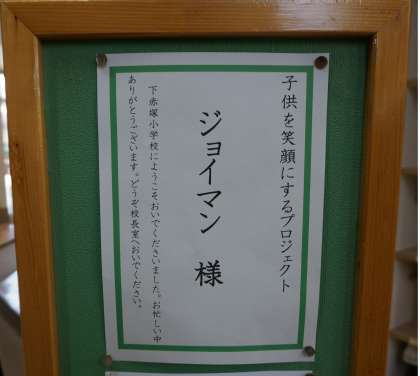 子供を笑顔にするプロジェクト
ジョイマン 様
下赤塚小学校にようこそおいでくださいました。お忙しい中
ありがとうございます。どうぞ校長室へおいでください。